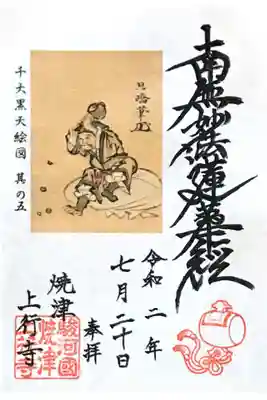 南無妙法蓮華経
令和二年
七月二十日
奉拝
焼津
上行寺
駿河國
焼津
千大黒天絵図 其の五